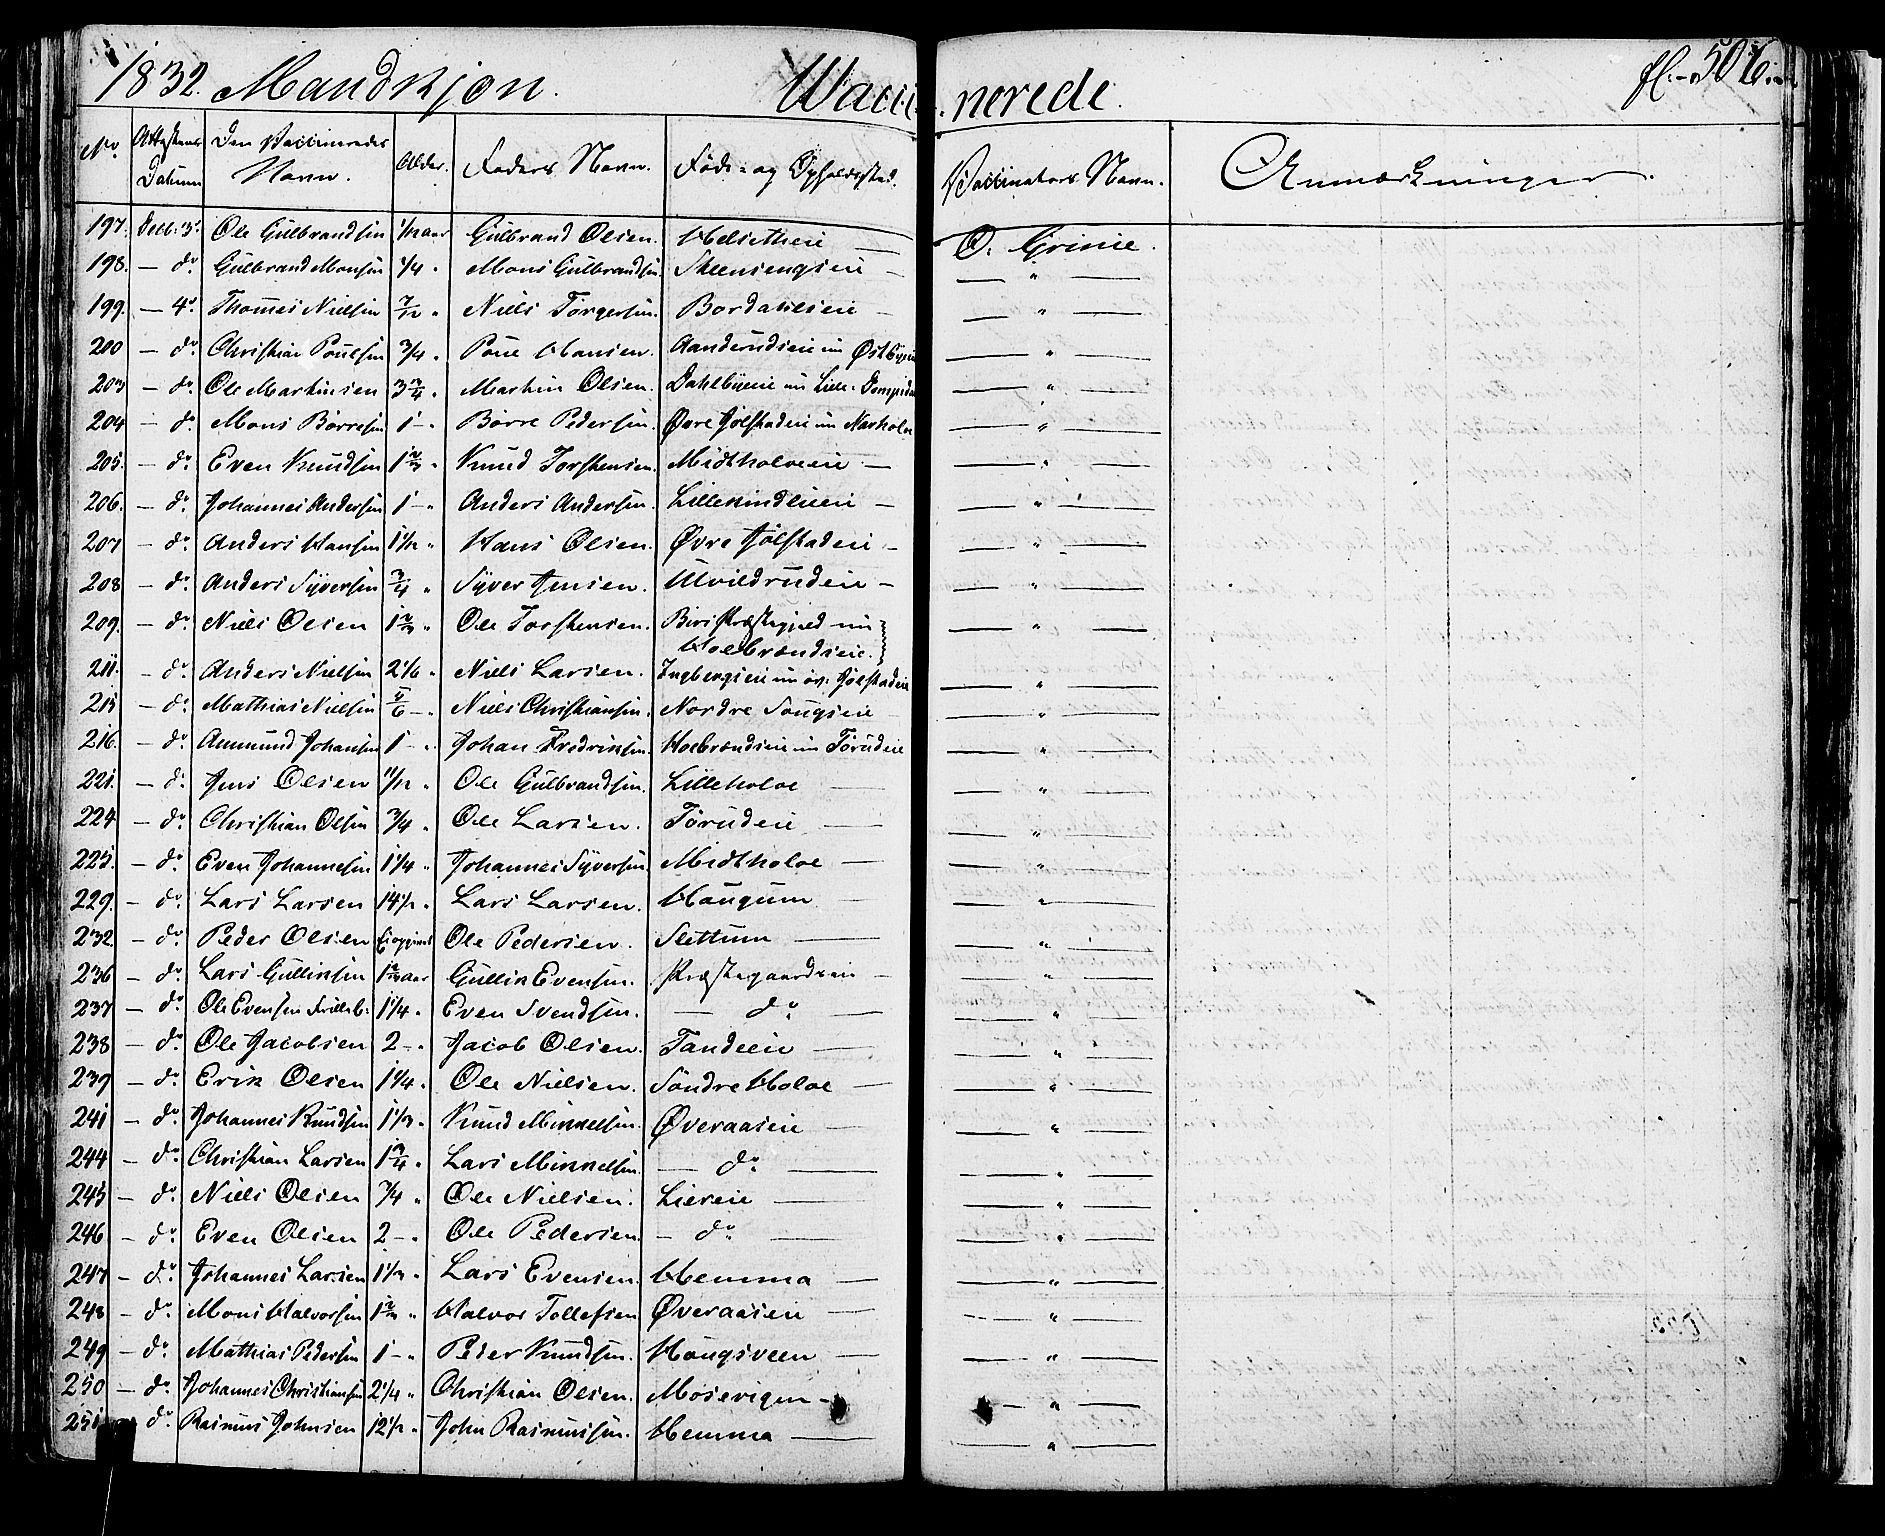 1832. Mandkjøn. Waccinerede. fl.-506.
No. Attestens Datum Den Vaccineredes Navn. Alder. Faders Navn. Føde- og Opholdssted. Vaccinators Navn. Anmærkninger.
197. Decb. 3. Ole Gulbrandsen 1/12 aar Gulbrand Olsen. Helsetheie — O. Grinie.
198. — do. Gulbrand Monsen 1/4 Mons Gulbrandsen. Skeensengseie — — " —
199. — 4. Thomes Nielsen 7/12 " Niels Torgersen. Bordahlseie — — " —
200 — do. Christian Poulsen 3/4 " Poul Hansen. Aanderudseie nu Østbyeie — " —
203 — do. Ole Martinsen 3 3/4 " Martin Olsen. Dahlbyeie nu Lille — " —
204 — do. Mons Børresen 1 - " Børre Pedersen. Øvre Jølstadeie nu Narholoe — " —
205. — do. Even Knudsen 1 2/3 " Knud Torstensen. Midtholoeeie — — " —
206. — do. Johannes Andersen 1 - " Anders Andersen. Lillekindlieie — — " —
207 — do. Anders Hansen 1 1/12 " Hans Olsen. Øvre Jølstadeie — — " —
208 — do. Anders Syversen 3/4 " Syver Jensen. Hvildrudeie — — " —
209. — do. Niels Olsen 1 2/3 " Ole Torstensen. Biri Præstegjeld nu — " —
Hoelbrændseie.
211. — do. Anders Nielsen 2 1/6 " Niels Larsen. Ingbergseie nu øv. Jølstadeie — " —
215 — do. Mathias Nielsen 5/6 - " Niels Christiansen. Nordre Sougseie — " —
216. — do. Ammund Johansen 1 - " Johan Fredriksen. Hoelbrændseie nu Torudeie — " —
221. — do. Jens Olsen 11/12 " Ole Gulbrandsen. Lilleholoe — — " —
224 — do. Christian Olsen 3/4 " Ole Larsen. Torudeie — — " —
225. — do. Even Johannesen 1 1/4 " Johannes Syversen Midtholoe — — " —
229. — do. Lars Larsen 14 1/2 " Lars Larsen. Haugum — — " —
232. — do. Peder Olsen Ole Pedersen. Slettum — — " —
236 — do. Lars Gulliksen 1 2/3 aar Gullik Evensen. Præstegaardseie — — " —
237 — do. Ole Evensen 1 1/4 " Even Svendsen. — do. — — " —
238 — do. Ole Jacobsen 2 - " Jacob Olsen. Tandeeie — — " —
239 — do. Erik Olsen 1 1/4 " Ole Nielsen. Søndre Holoe — — " —
241 — do. Johannes Knudsen 1 1/3 " Knud Mikkelsen. Øveraaseie — — " —
244 — do. Christian Larsen 1 3/4 " Lars Mikkelsen. — do. — — " —
245 — do. Niels Olsen 3/4 " Ole Nielsen. Liereie — — " —
246 — do. Even Olsen 2 - " Ole Pedersen. — do. — — " —
247 — do. Johannes Larsen 1 1/2 " Lars Evensen. Hemma — — " —
248 — do. Mons Halvorsen 1 2/3 " Halvor Tollefsen Øveraasien — — " —
249 — do. Mathias Pedersen 1 - " Peder Knudsen. Haugsveen — — " —
250 — do. Johannes Christiansen 2 1/4 " Christian Olsen. Mosevigen — — " —
251 do. Rasmus Johnsen 12 1/2 " John Rasmussen. Hemma — — " —